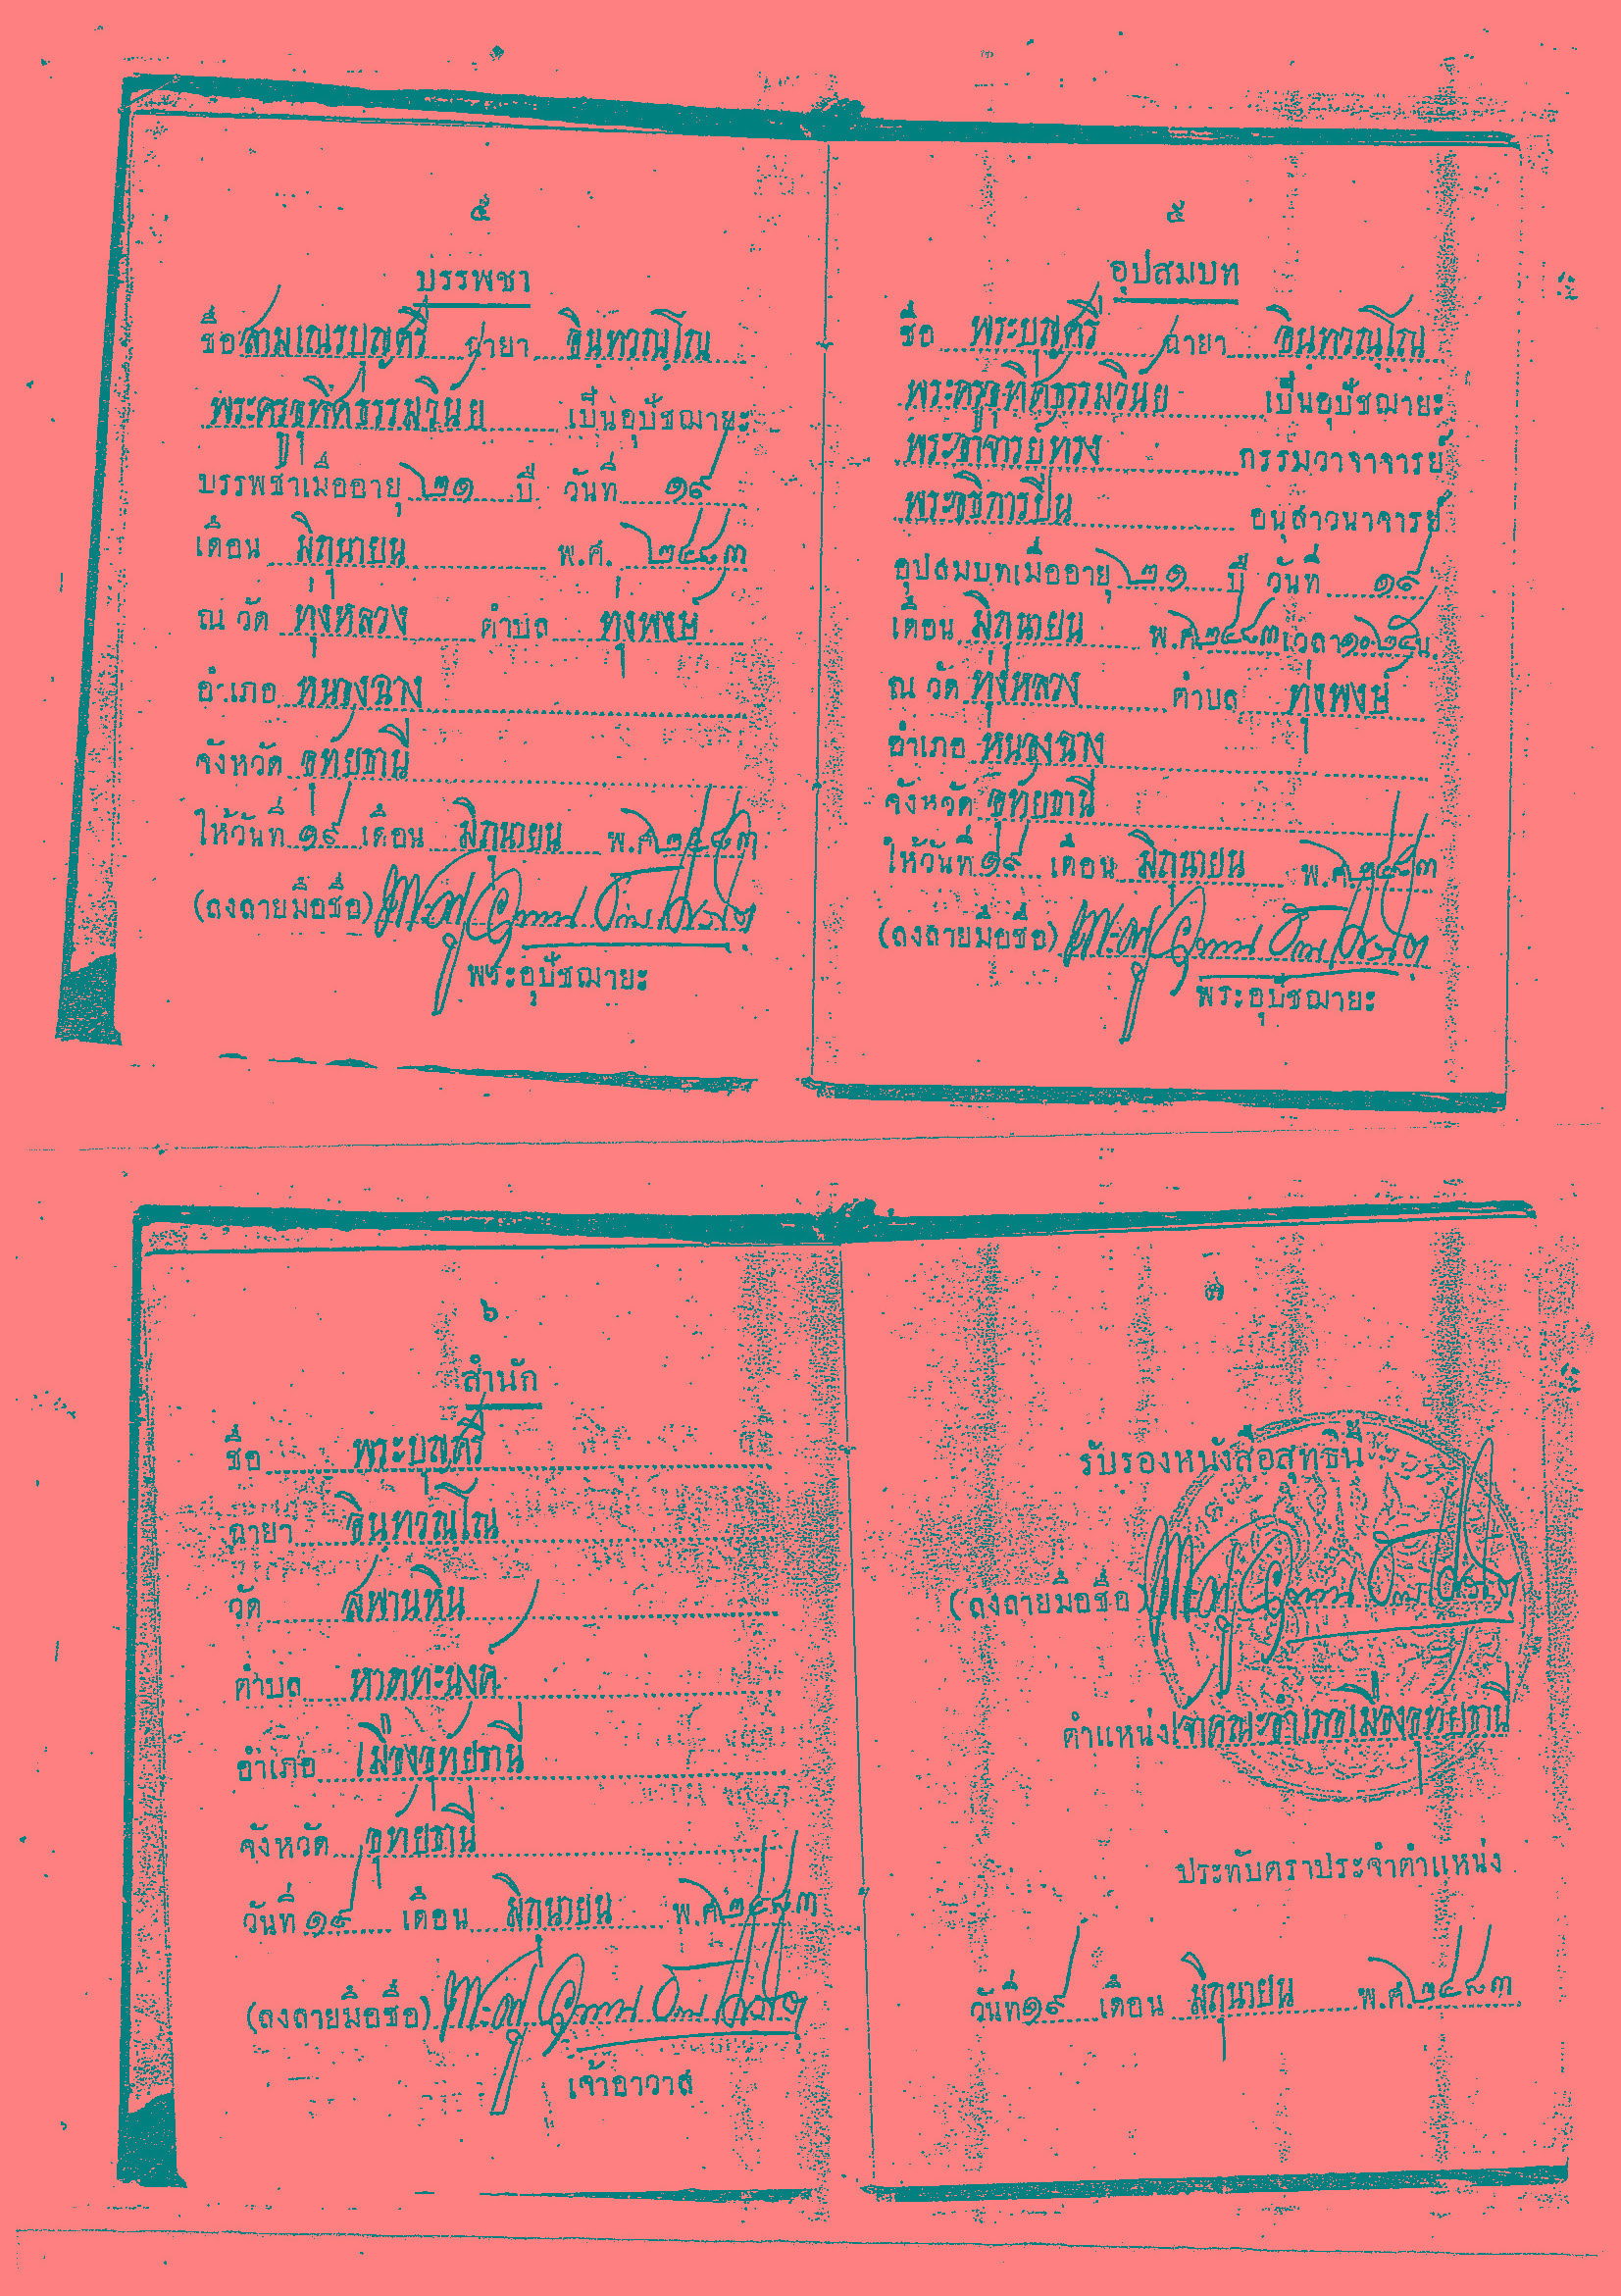 ๔
บรรพชา
ชื่อ สามเณรบุญศรี ฉายา อินฺทวณฺโณ
พระครูอุทิศธรรมวินัย เป็นอุปัชฌายะ
บรรพชาเมื่ออายุ ๒๑ ปี วันที่ ๑๙
เดือน มิถุนายน พ.ศ. ๒๔๘๓
ณ วัด ทุ่งหลวง ตำบล ทุ่งพงษ์
อำเภอ หนองฉาง
จังหวัด อุทัยธานี
ให้วันที่ ๑๙ เดือน มิถุนายน พ.ศ. ๒๔๘๓
(ลงลายมือชื่อ)
พระอุปัชฌายะ
๕
อุปสมบท
ชื่อ พระบุญศรี ฉายา อินฺทวณฺโณ
พระครูอุทิศธรรมวินัย เป็นอุปัชฌายะ
พระอาจารย์ทรง กรรมวาจาจารย์
พระอธิการปิ่น อนุสาวนาจารย์
อุปสมบทเมื่ออายุ ๒๑ ปี วันที่ ๑๙
เดือน มิถุนายน พ.ศ. ๒๔๘๓ เวลา ๑๐.๒๕ น.
ณ วัด ทุ่งหลวง ตำบล ทุ่งพงษ์
อำเภอ หนองฉาง
จังหวัด อุทัยธานี
ให้วันที่ ๑๙ เดือน มิถุนายน พ.ศ. ๒๔๘๓
(ลงลายมือชื่อ)
พระอุปัชฌายะ
๖
สำนัก
ชื่อ พระบุญศรี
ฉายา อินฺทวณฺโณ
วัด สพานหิน
ตำบล หาดทะนงค์
อำเภอ เมืองอุทัยธานี
จังหวัด อุทัยธานี
วันที่ ๑๙ เดือน มิถุนายน พ.ศ. ๒๔๘๓
(ลงลายมือชื่อ)
เจ้าอาวาส
๗
รับรองหนังสือสุทธินี้
(ลงลายมือชื่อ)
ตำแหน่ง เจ้าคณะอำเภอเมืองอุทัยธานี
ประทับตราประจำตำแหน่ง
วันที่ ๑๙ เดือน มิถุนายน พ.ศ. ๒๔๘๓